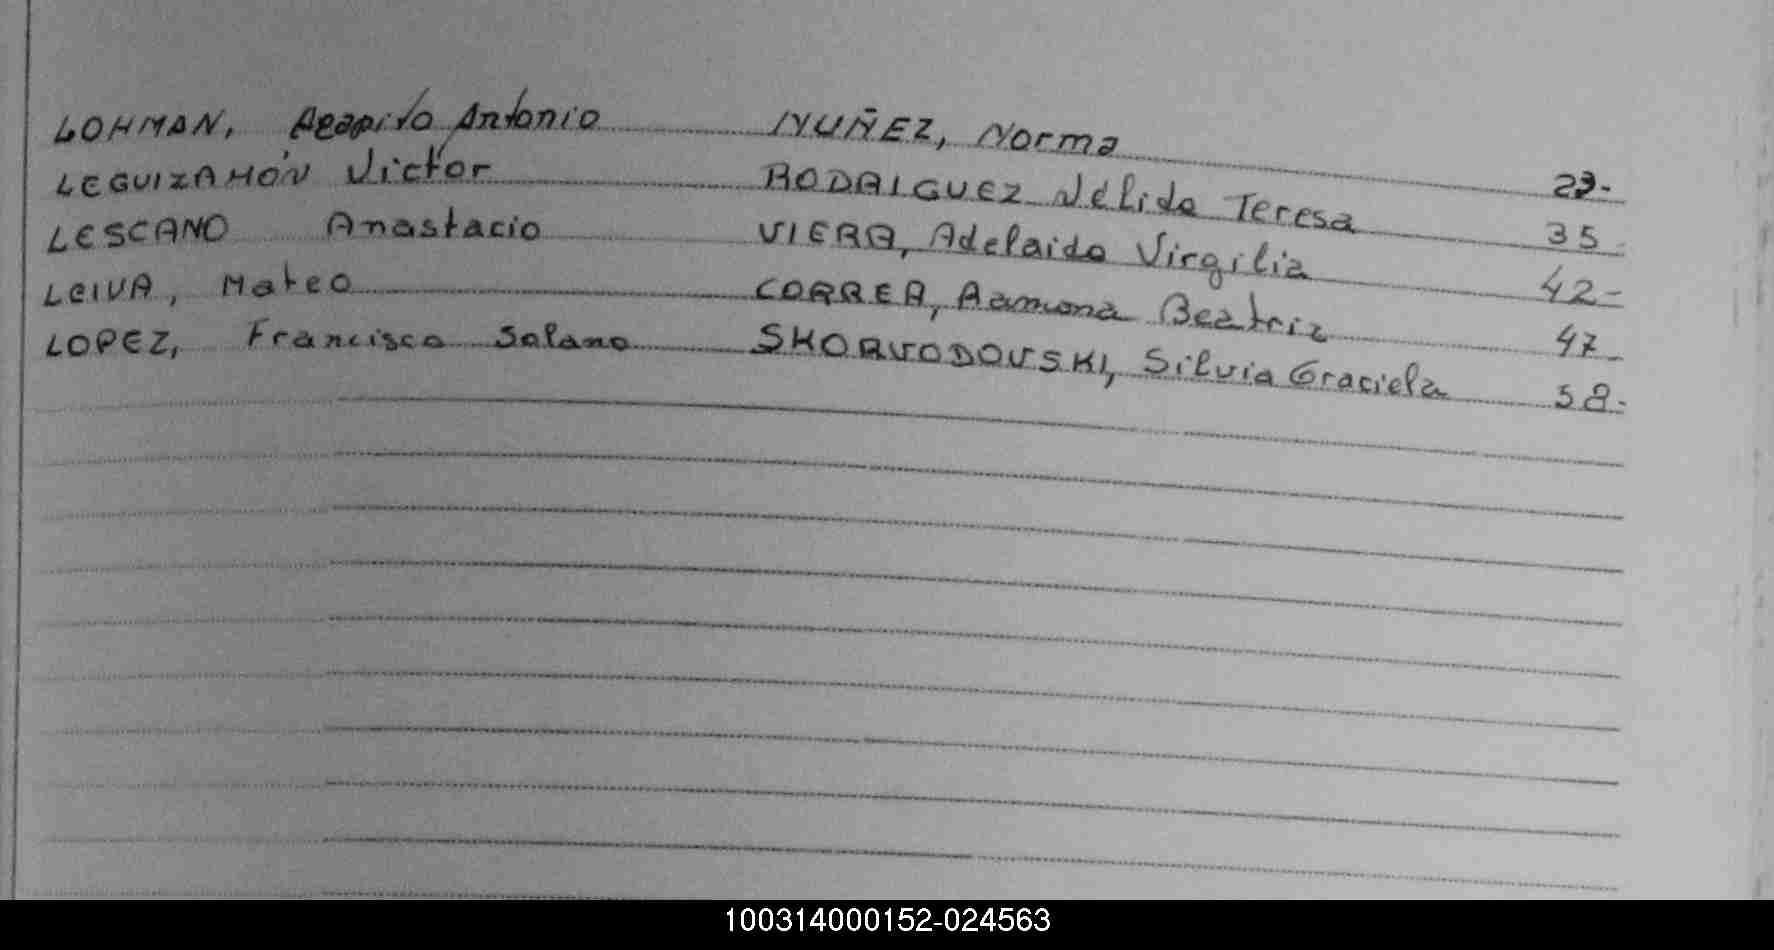 LOHMAN, Agapito Antonio NUÑEZ, Norma 29-
LEGUIZAMÓN Victor RODRIGUEZ Nélida Teresa 35-
LESCANO Anastacio VIERA, Adelaida Virgilia 42-
LEIVA, Mateo CORREA, Ramona Beatriz 47-
LOPEZ, Francisco Solano SKORVODOVSKI, Silvia Graciela 58-
100314000152-024563